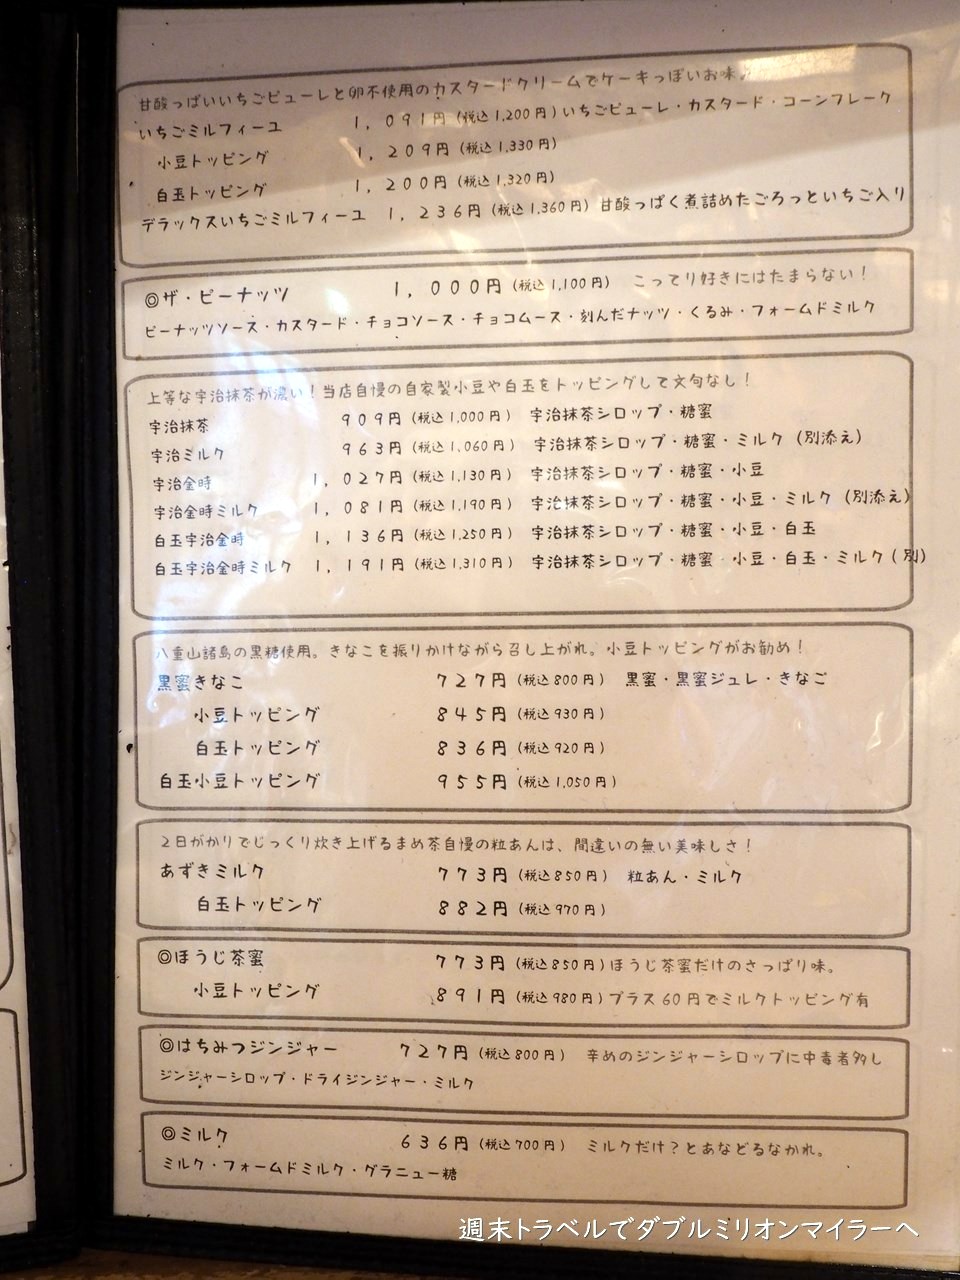 甘酸っぱいいちごピューレと卵不使用のカスタードクリームでケーキっぽいお味♪
いちごミルフィーユ 1，091円（税込1,200円）いちごピューレ・カスタード・コーンフレーク
小豆トッピング 1，209円（税込1,330円）
白玉トッピング 1，200円（税込1,320円）
デラックスいちごミルフィーユ 1，236円（税込1,360円）甘酸っぱく煮詰めたごろっといちご入り
◎ザ・ピーナッツ 1，000円（税込1,100円） こってり好きにはたまらない！
ピーナッツソース・カスタード・チョコソース・チョコムース・刻んだナッツ・くるみ・フォームドミルク
上等な宇治抹茶が濃い！当店自慢の自家製小豆や白玉をトッピングして文句なし！
宇治抹茶 909円（税込1,000円） 宇治抹茶シロップ・糖蜜
宇治ミルク 963円（税込1,060円） 宇治抹茶シロップ・糖蜜・ミルク（別添え）
宇治金時 1，027円（税込1,130円） 宇治抹茶シロップ・糖蜜・小豆
宇治金時ミルク 1，081円（税込1,190円） 宇治抹茶シロップ・糖蜜・小豆・ミルク（別添え）
白玉宇治金時 1，136円（税込1,250円） 宇治抹茶シロップ・糖蜜・小豆・白玉
白玉宇治金時ミルク 1，191円（税込1,310円） 宇治抹茶シロップ・糖蜜・小豆・白玉・ミルク（別）
八重山諸島の黒糖使用。きなこを振りかけながら召し上がれ。小豆トッピングがお勧め！
黒蜜きなこ 727円（税込800円） 黒蜜・黒蜜ジュレ・きなこ
小豆トッピング 845円（税込930円）
白玉トッピング 836円（税込920円）
白玉小豆トッピング 955円（税込1,050円）
２日がかりでじっくり炊き上げるまめ茶自慢の粒あんは、間違いの無い美味しさ！
あずきミルク 773円（税込850円） 粒あん・ミルク
白玉トッピング 882円（税込970円）
◎ほうじ茶蜜 773円（税込850円）ほうじ茶蜜だけのさっぱり味。
小豆トッピング 891円（税込980円）プラス60円でミルクトッピング有
◎はちみつジンジャー 727円（税込800円） 辛めのジンジャーシロップに中毒者多し
ジンジャーシロップ・ドライジンジャー・ミルク
◎ミルク 636円（税込700円） ミルクだけ？とあなどるなかれ。
ミルク・フォームドミルク・グラニュー糖
週末トラベルでダブルミリオンマイラーへ